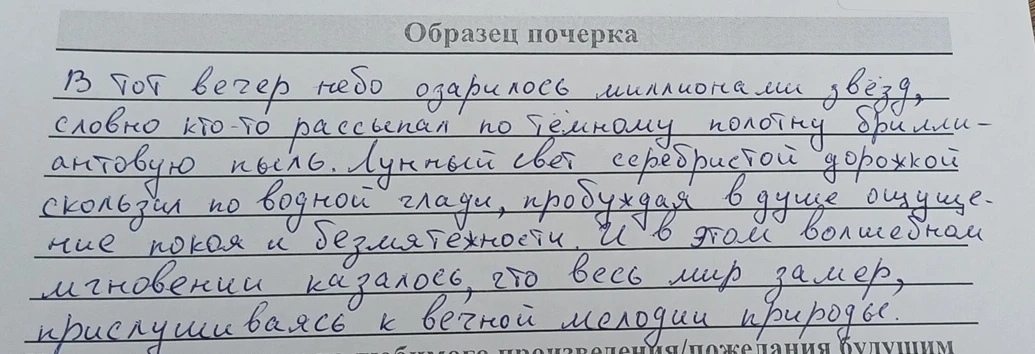 Образец почерка
В тот вечер небо озарилось миллионами звёзд,
словно кто-то рассыпал по тёмному полотну брилли-
антовую пыль. Лунный свет серебристой дорожкой
скользил по водной глади, пробуждая в душе ощуще-
ние покоя и безмятежности. И в этом волшебном
мгновении казалось, что весь мир замер,
прислушиваясь к вечной мелодии природы.
любимого произведения/пожелания будущим